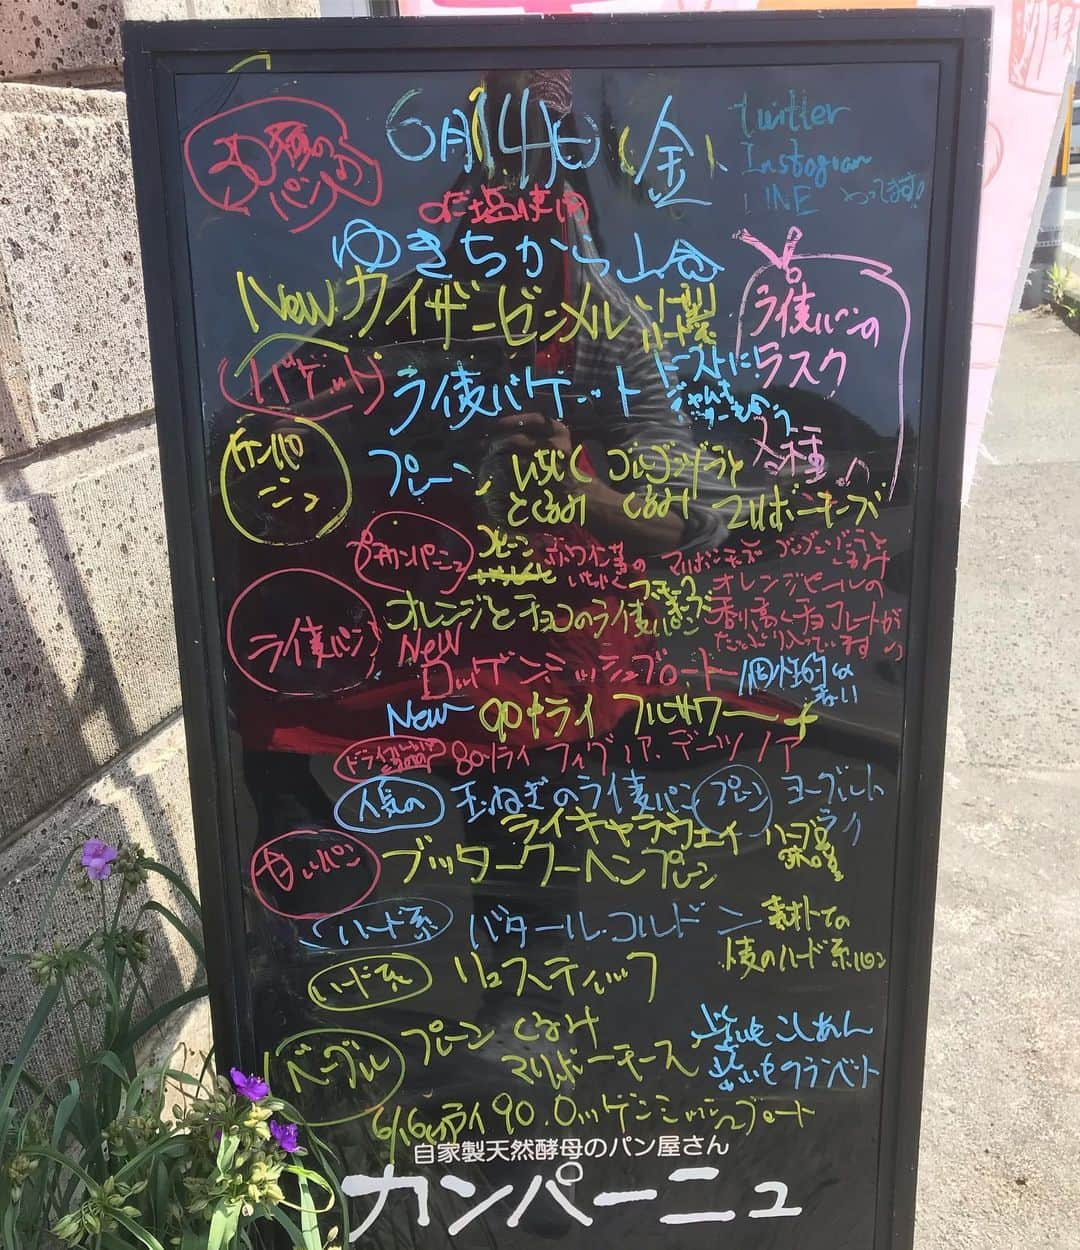 6月14日(金)
twitter
Instogram
LINE やってます!
のだ塩使用
ゆきちから山食
Newカイザーゼンメル
ライ麦パンの
ラスク
各種
バゲット
ライ麦バゲット
トーストに!
カンパーニュ
プレーン
いちじく
とくるみ
ゴルゴンゾーラと
くるみ
マリボーチーズ
プチカンパーニュ
プレーン
赤ワイン煮の
いちじく
マリボーチーズ
ゴルゴンゾーラと
くるみ
ライ麦パン
オレンジとチョコのライ麦パン
オレンジピールの
香り高くチョコレートが
たっぷり入っています
New
ロッゲンミッシュブロート
個性的な
味わい
New 90%ライ フルサワー
80%ライ フィグノア.デーツノア
人気の
玉ねぎのライ麦パン
プレーン
ヨーグルト
ライ
ライキャラウェイ
甘いパン
ブッタークーヘンプレーン
ハード系
バタール.コルドン
麦のハード系パン
ハード系
リュスティック
ベーグル
プレーン くるみ
マリボーチーズ
こしあん
6/16(日)ライ90.ロッゲンミッシュブロート
自家製天然酵母のパン屋さん
カンパーニュ